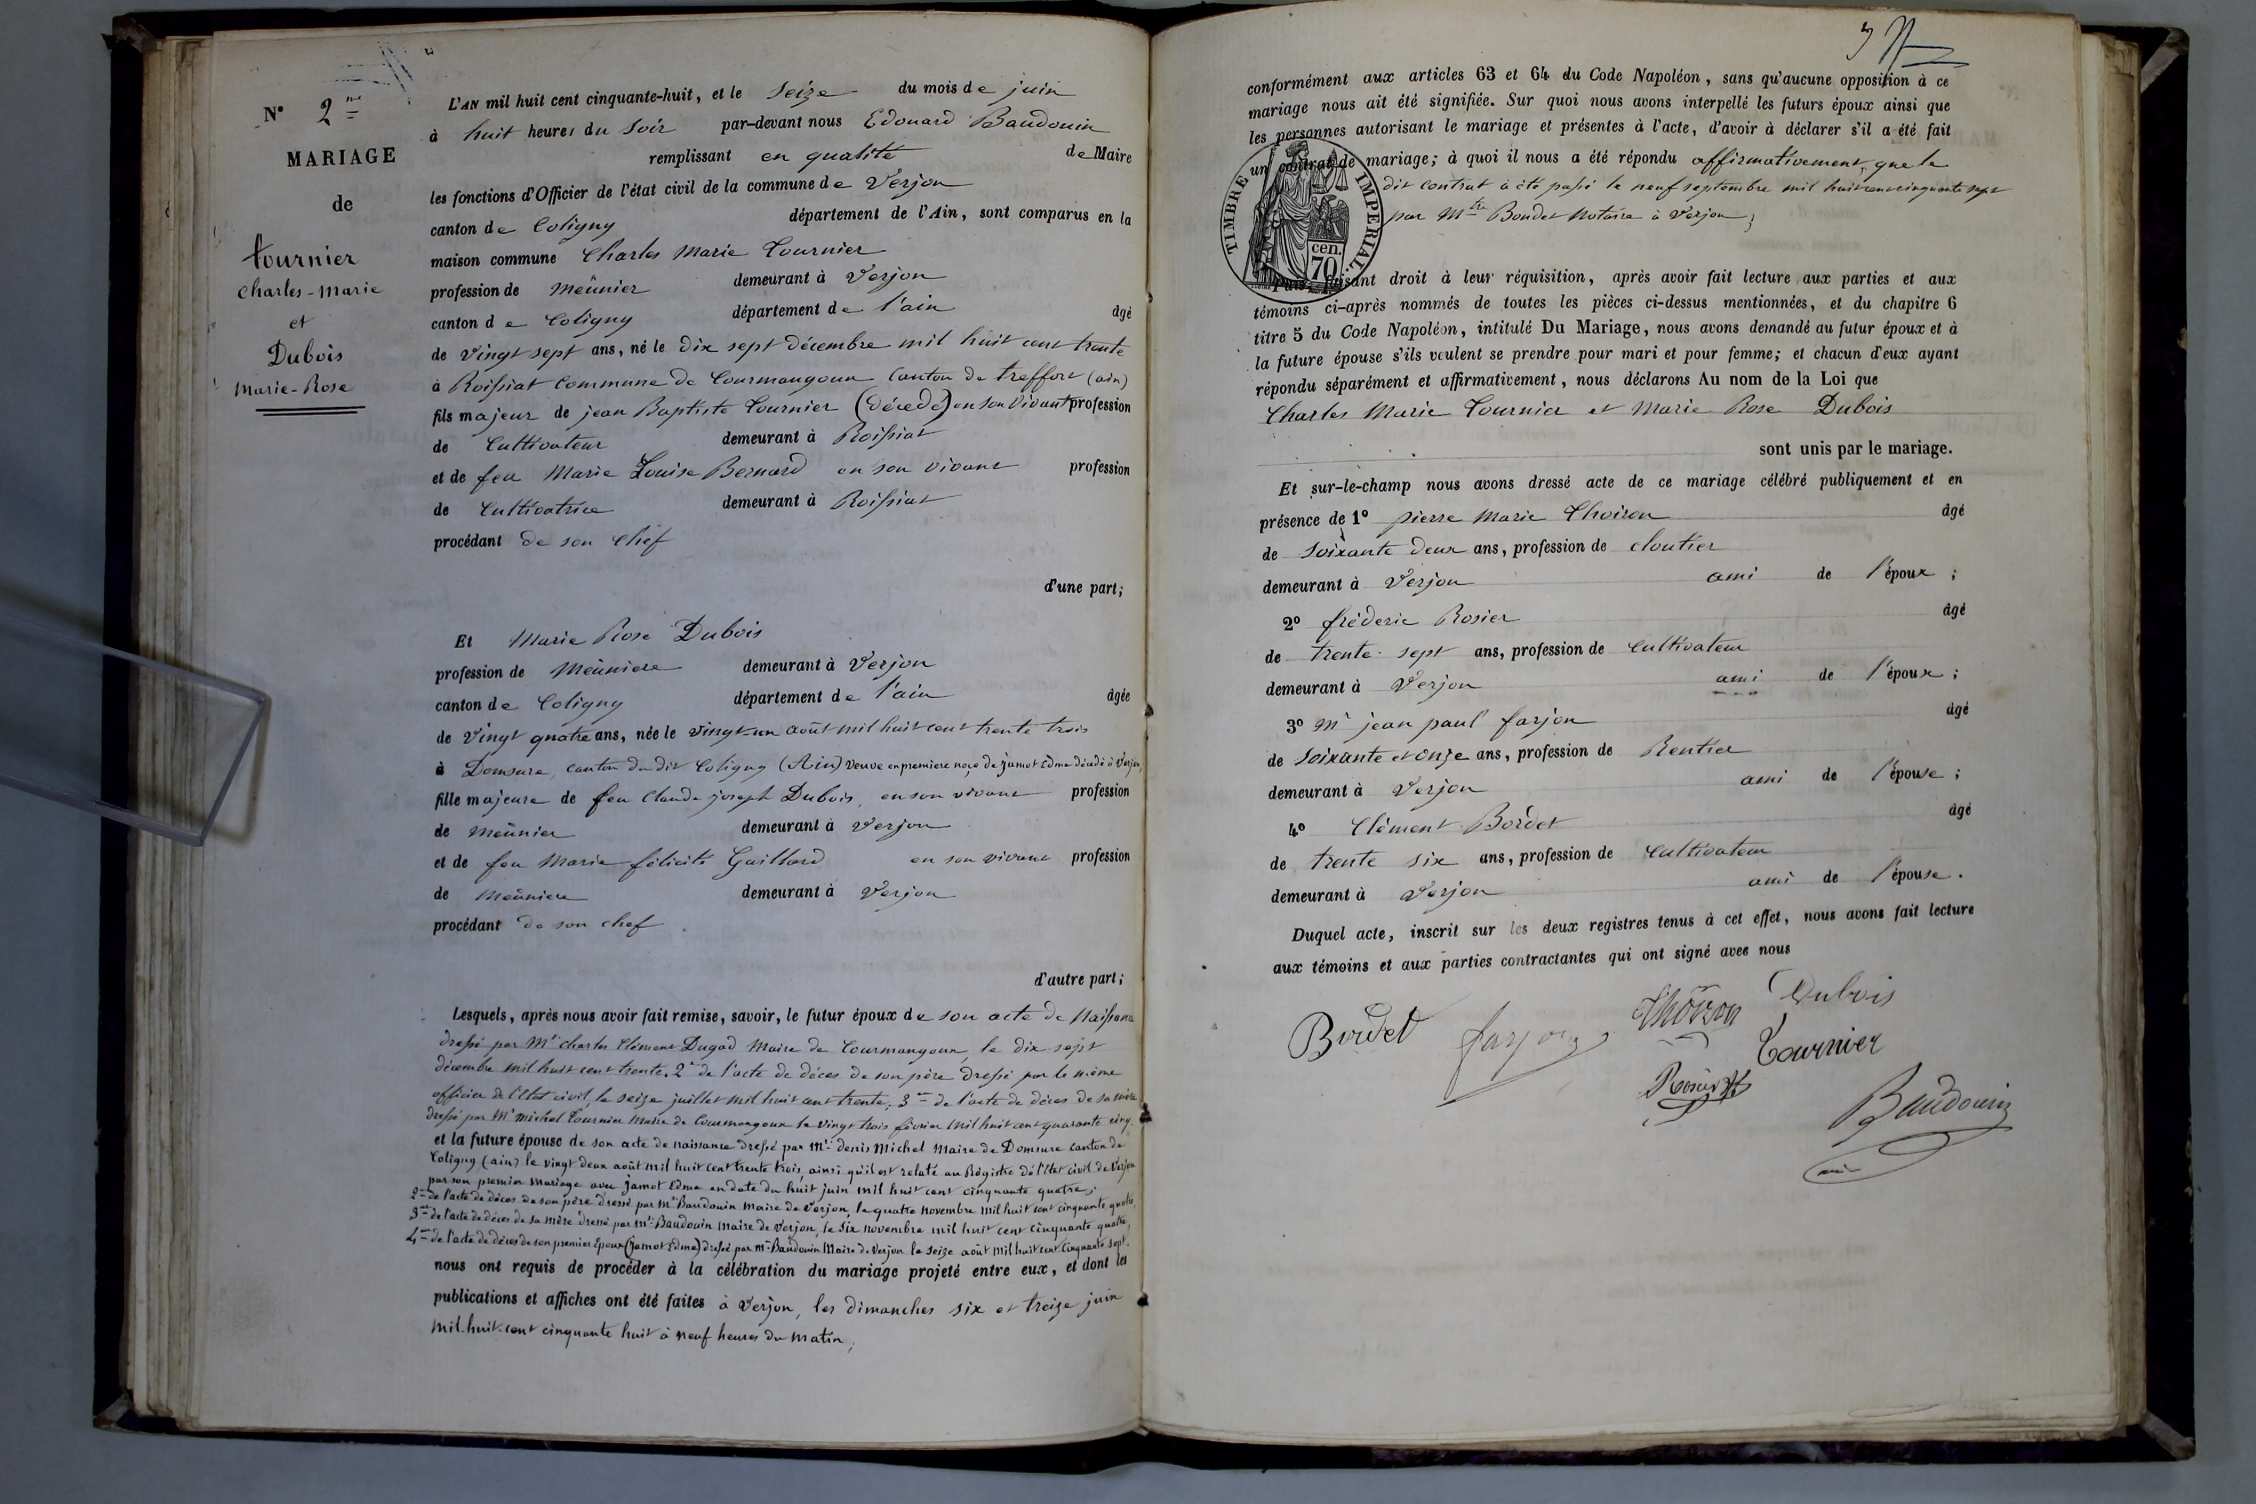 N° 2me
MARIAGE
de
tournier
Charles-Marie
et
Dubois
Marie-Rose
L'AN mil huit cent cinquante-huit, et le Seize du mois de juin
à huit heures du Soir par-devant nous Edouard Baudouin
remplissant en qualité de Maire
les fonctions d'Officier de l'état civil de la commune de Verjon
canton de Coligny département de l'Ain, sont comparus en la
maison commune Charles Marie Tournier
profession de Meûnier demeurant à Verjon
canton de Coligny département de l'ain âgé
de vingt sept ans, né le dix sept décembre mil huit cent trente
à Roissiat Commune de Courmangoux Canton de treffort (ain)
fils majeur de jean Baptiste Tournier (décedé) en son vivant profession
de Cultivateur demeurant à Roissiat
et de feu Marie Louise Bernard en son vivant profession
de Cultivatrice demeurant à Roissiat
procédant de son chef
d'une part;
Et Marie Rose Dubois
profession de Meûniere demeurant à Verjon
canton de Coligny département de l'ain âgée
de vingt quatre ans, née le vingt-un août mil huit cent trente trois
à Domsure, canton du dit Coligny (Ain) veuve en premiere noce de jamot Edme décédé à Verjon,
fille majeure de feu Claude joseph Dubois, en son vivant profession
de meûnier demeurant à Verjon
et de feu Marie félicité Gaillard en son vivant profession
de Meûniere demeurant à Verjon
procédant de son chef
d'autre part;
Lesquels, après nous avoir fait remise, savoir, le futur époux de son acte de Naissance
dressé par Mr Charles Clément Dugad Maire de Courmangoux, le dix sept
décembre mil huit cent trente, 2° de l'acte de décès de son père dressé par le même
officier de l'Etat civil le seize juillet mil huit cent trente; 3me de l'acte de décès de sa mère
dressé par Mr Michel Tournier Maire de Courmangoux le vingt trois février mil huit cent quarante cinq
et la future épouse de son acte de naissance dressé par Mr denis Michel Maire de Domsure canton de
Coligny (ain) le vingt deux août mil huit cent trente trois, ainsi qu'il est relaté au Régistre de l'Etat civil de Verjon
par son premier mariage avec jamot Edme en date du huit juin mil huit cent cinquante quatre;
2me de l'acte de décès de son père dressé par mr Baudouin Maire de Verjon, le quatre novembre mil huit cent cinquante quatre,
3me de l'acte de décès de sa mère dressé par mr Baudouin maire de Verjon, le six novembre mil huit cent cinquante quatre,
4me de l'acte de décès de son premier Epoux (jamot Edme) dressé par mr Baudouin Maire de Verjon le seize août mil huit cent cinquante sept.
nous ont requis de procéder à la célébration du mariage projeté entre eux, et dont les
publications et affiches ont été faites à Verjon, les dimanches six et treize juin
mil-huit-cent cinquante huit à neuf heures du matin;
conformément aux articles 63 et 64 du Code Napoléon, sans qu'aucune opposition à ce
mariage nous ait été signifiée. Sur quoi nous avons interpellé les futurs époux ainsi que
les personnes autorisant le mariage et présentes à l'acte, d'avoir à déclarer s'il a été fait
un contrat de mariage; à quoi il nous a été répondu affirmativement, que le
dit contrat à été passé le neuf septembre mil huit cent cinquante sept
par Mtre Boudet Notaire à Verjon;
TIMBRE IMPERIAL.
70 cen.
Puis, faisant droit à leur réquisition, après avoir fait lecture aux parties et aux
témoins ci-après nommés de toutes les pièces ci-dessus mentionnées, et du chapitre 6
titre 5 du Code Napoléon, intitulé Du Mariage, nous avons demandé au futur époux et à
la future épouse s'ils veulent se prendre pour mari et pour femme; et chacun d'eux ayant
répondu séparément et affirmativement, nous déclarons Au nom de la Loi que
Charles Marie Tournier et Marie Rose Dubois
sont unis par le mariage.
Et sur-le-champ nous avons dressé acte de ce mariage célébré publiquement et en
présence de 1° pierre Marie Thoiron âgé
de Soixante deux ans, profession de cloutier
demeurant à Verjon ami de l'époux;
2° fréderic Rosier âgé
de trente-sept ans, profession de Cultivateur
demeurant à Verjon ami de l'époux;
3° Mr jean paul farjon âgé
de Soixante et onze ans, profession de Rentier
demeurant à Verjon ami de l'épouse;
4° Clément Bordet âgé
de trente six ans, profession de Cultivateur
demeurant à Verjon ami de l'épouse.
Duquel acte, inscrit sur les deux registres tenus à cet effet, nous avons fait lecture
aux témoins et aux parties contractantes qui ont signé avec nous
Bordet farjon Thoiron Dubois
Tournier
Rosier
Baudouin